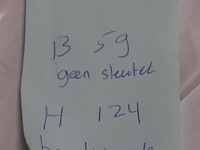 B 59
geen sleutel
H 124